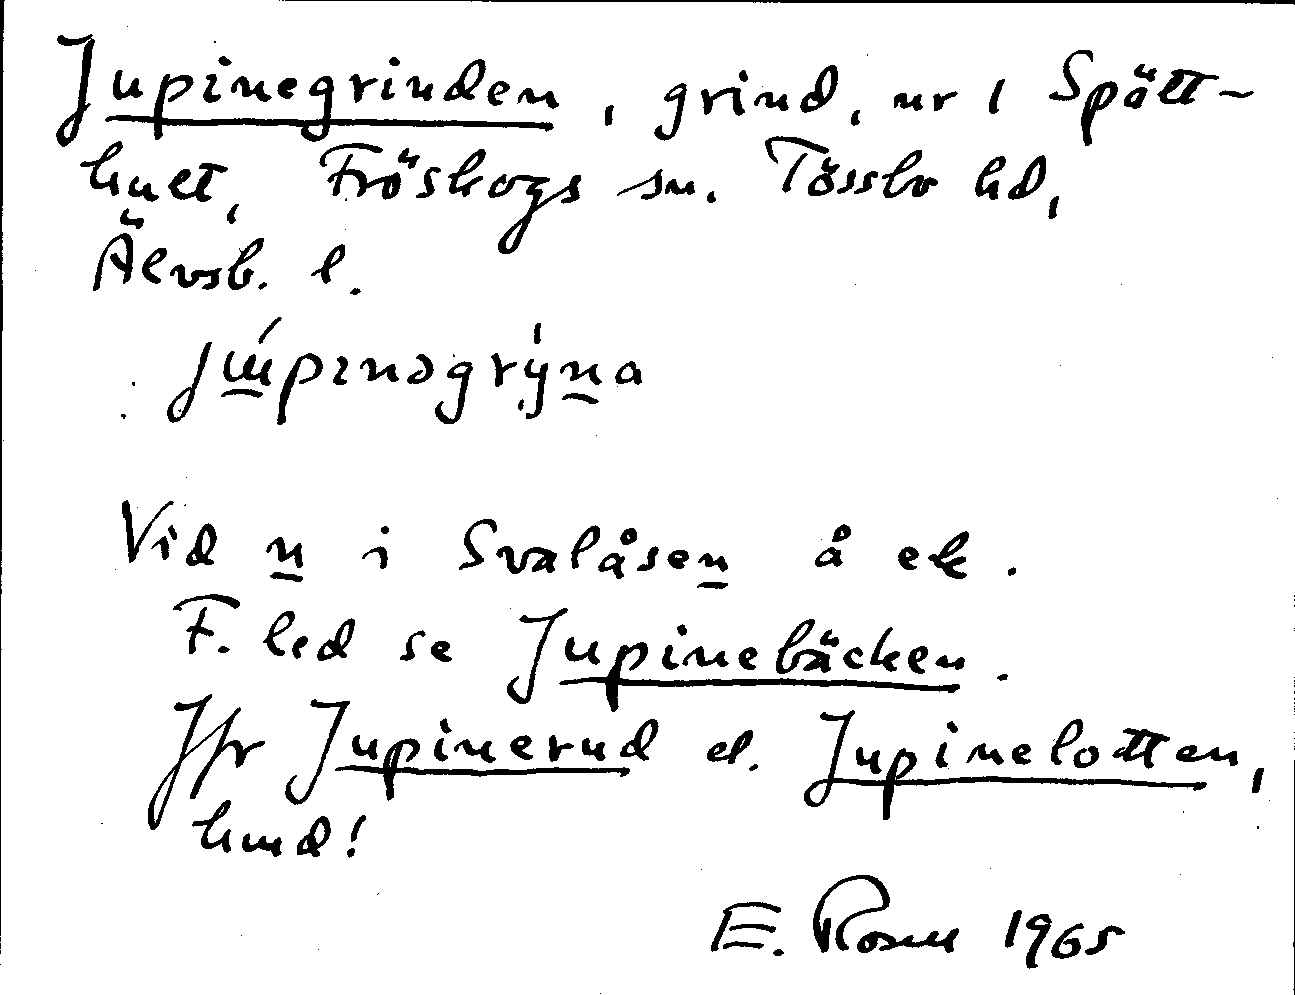 Jupinegrinden, grind, nr 1 Spätt-
hult, Fröskogs sn. Tössbo hd,
Älvsb. l.
Vid n i Svalåsen å ek.
F. led se Jupinebäcken.
Jfr Jupinerud el. Jupinelotten,
hmd!
E. Rosell 1965